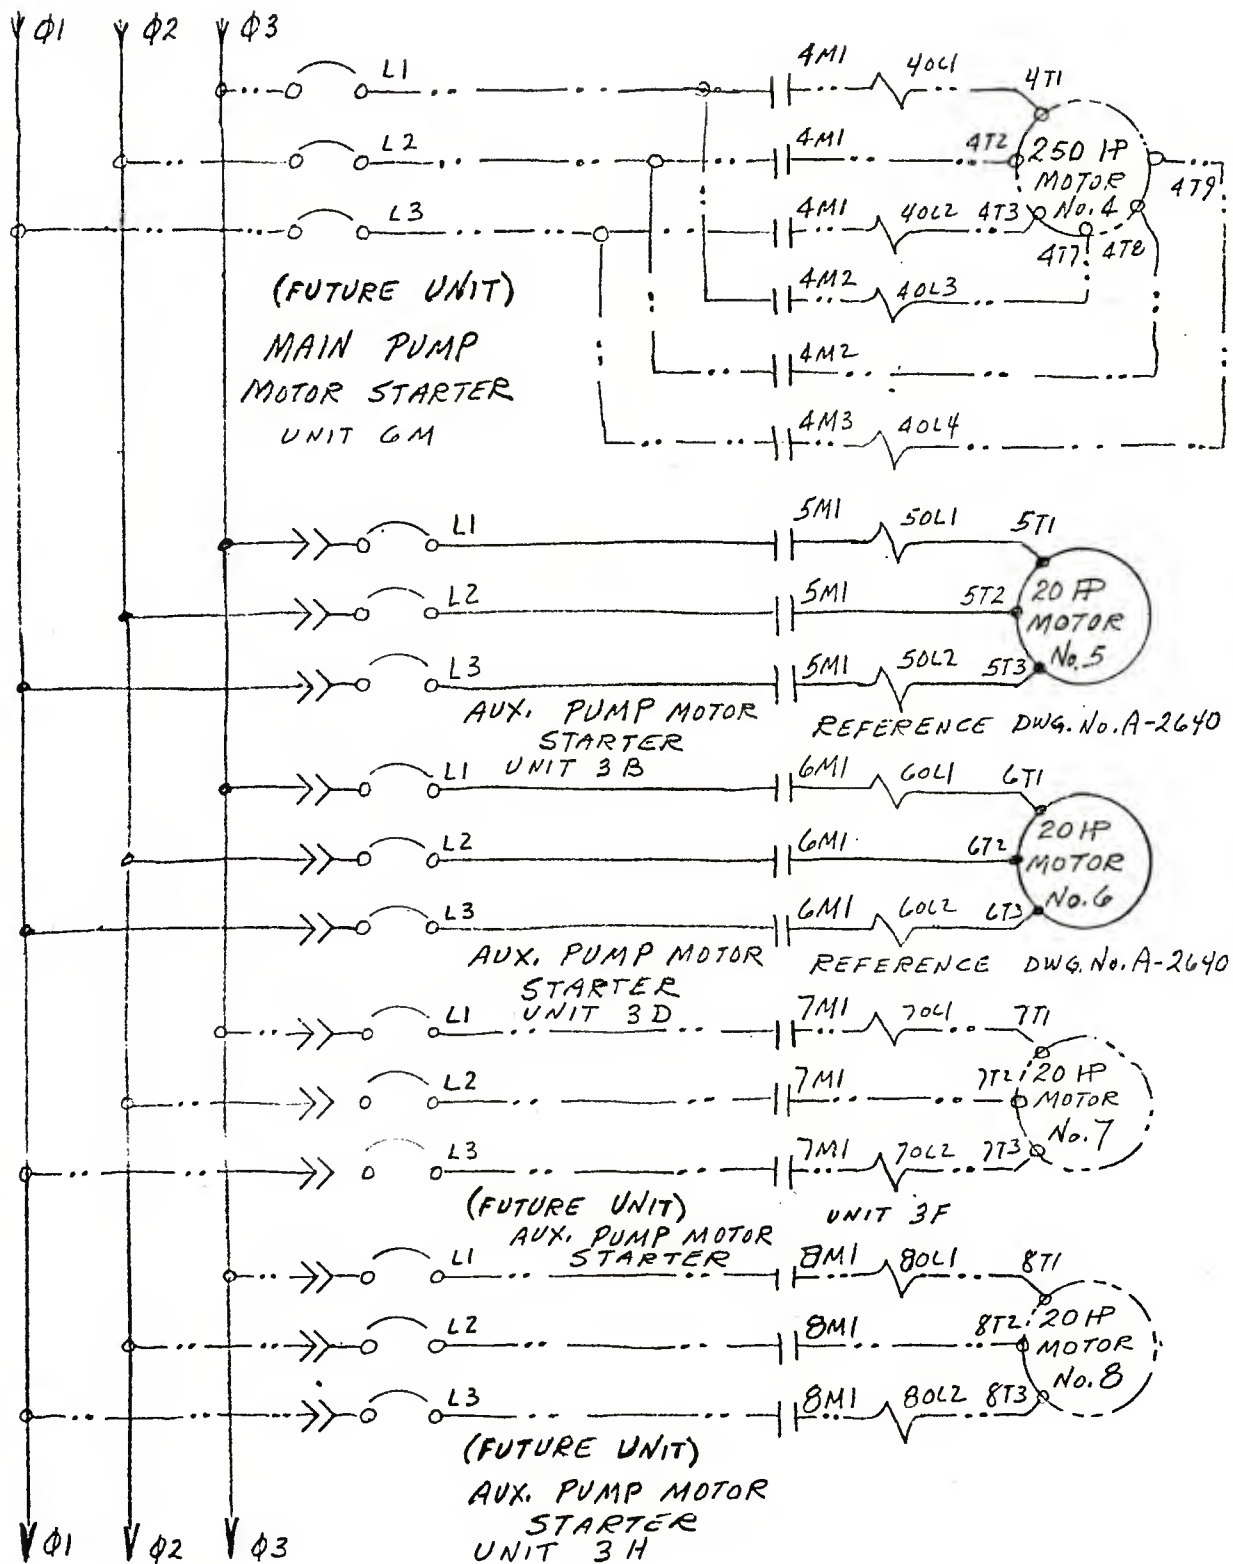 φ1 φ2 φ3
L1 4M1 4OL1 4T1
L2 4M1 4T2 250 HP
MOTOR
No. 4
4T9
L3 4M1 4OL2 4T3
4T7 4T8
(FUTURE UNIT)
MAIN PUMP
MOTOR STARTER
UNIT 6M
4M2 4OL3
4M2
4M3 4OL4
L1 5M1 5OL1 5T1
L2 5M1 5T2 20 HP
MOTOR
No. 5
L3 5M1 5OL2 5T3
AUX. PUMP MOTOR
STARTER
UNIT 3B
REFERENCE DWG. No. A-2640
L1 6M1 6OL1 6T1
L2 6M1 6T2 20 HP
MOTOR
No. 6
L3 6M1 6OL2 6T3
AUX. PUMP MOTOR
STARTER
UNIT 3D
REFERENCE DWG. No. A-2640
L1 7M1 7OL1 7T1
L2 7M1 7T2 20 HP
MOTOR
No. 7
L3 7M1 7OL2 7T3
(FUTURE UNIT) UNIT 3F
AUX. PUMP MOTOR
STARTER
L1 8M1 8OL1 8T1
L2 8M1 8T2 20 HP
MOTOR
No. 8
L3 8M1 8OL2 8T3
(FUTURE UNIT)
AUX. PUMP MOTOR
STARTER
UNIT 3H
φ1 φ2 φ3